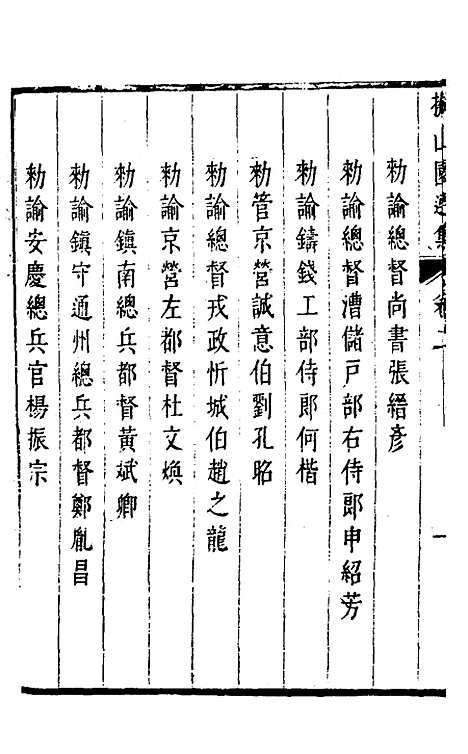 擬山園選集 卷二 一
勑諭總督尚書張縉彥
勑諭總督漕儲戸部右侍郎申紹芳
勑諭鑄錢工部侍郎何楷
勑管京營誠意伯劉孔昭
勑諭總督戎政忻城伯趙之龍
勑諭京營左都督杜文煥
勑諭鎮南總兵都督黃斌卿
勑諭鎮守通州總兵都督鄭胤昌
勑諭安慶總兵官楊振宗